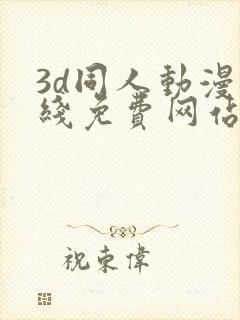 3d同人動漫
綫免費网佔
祝束偉